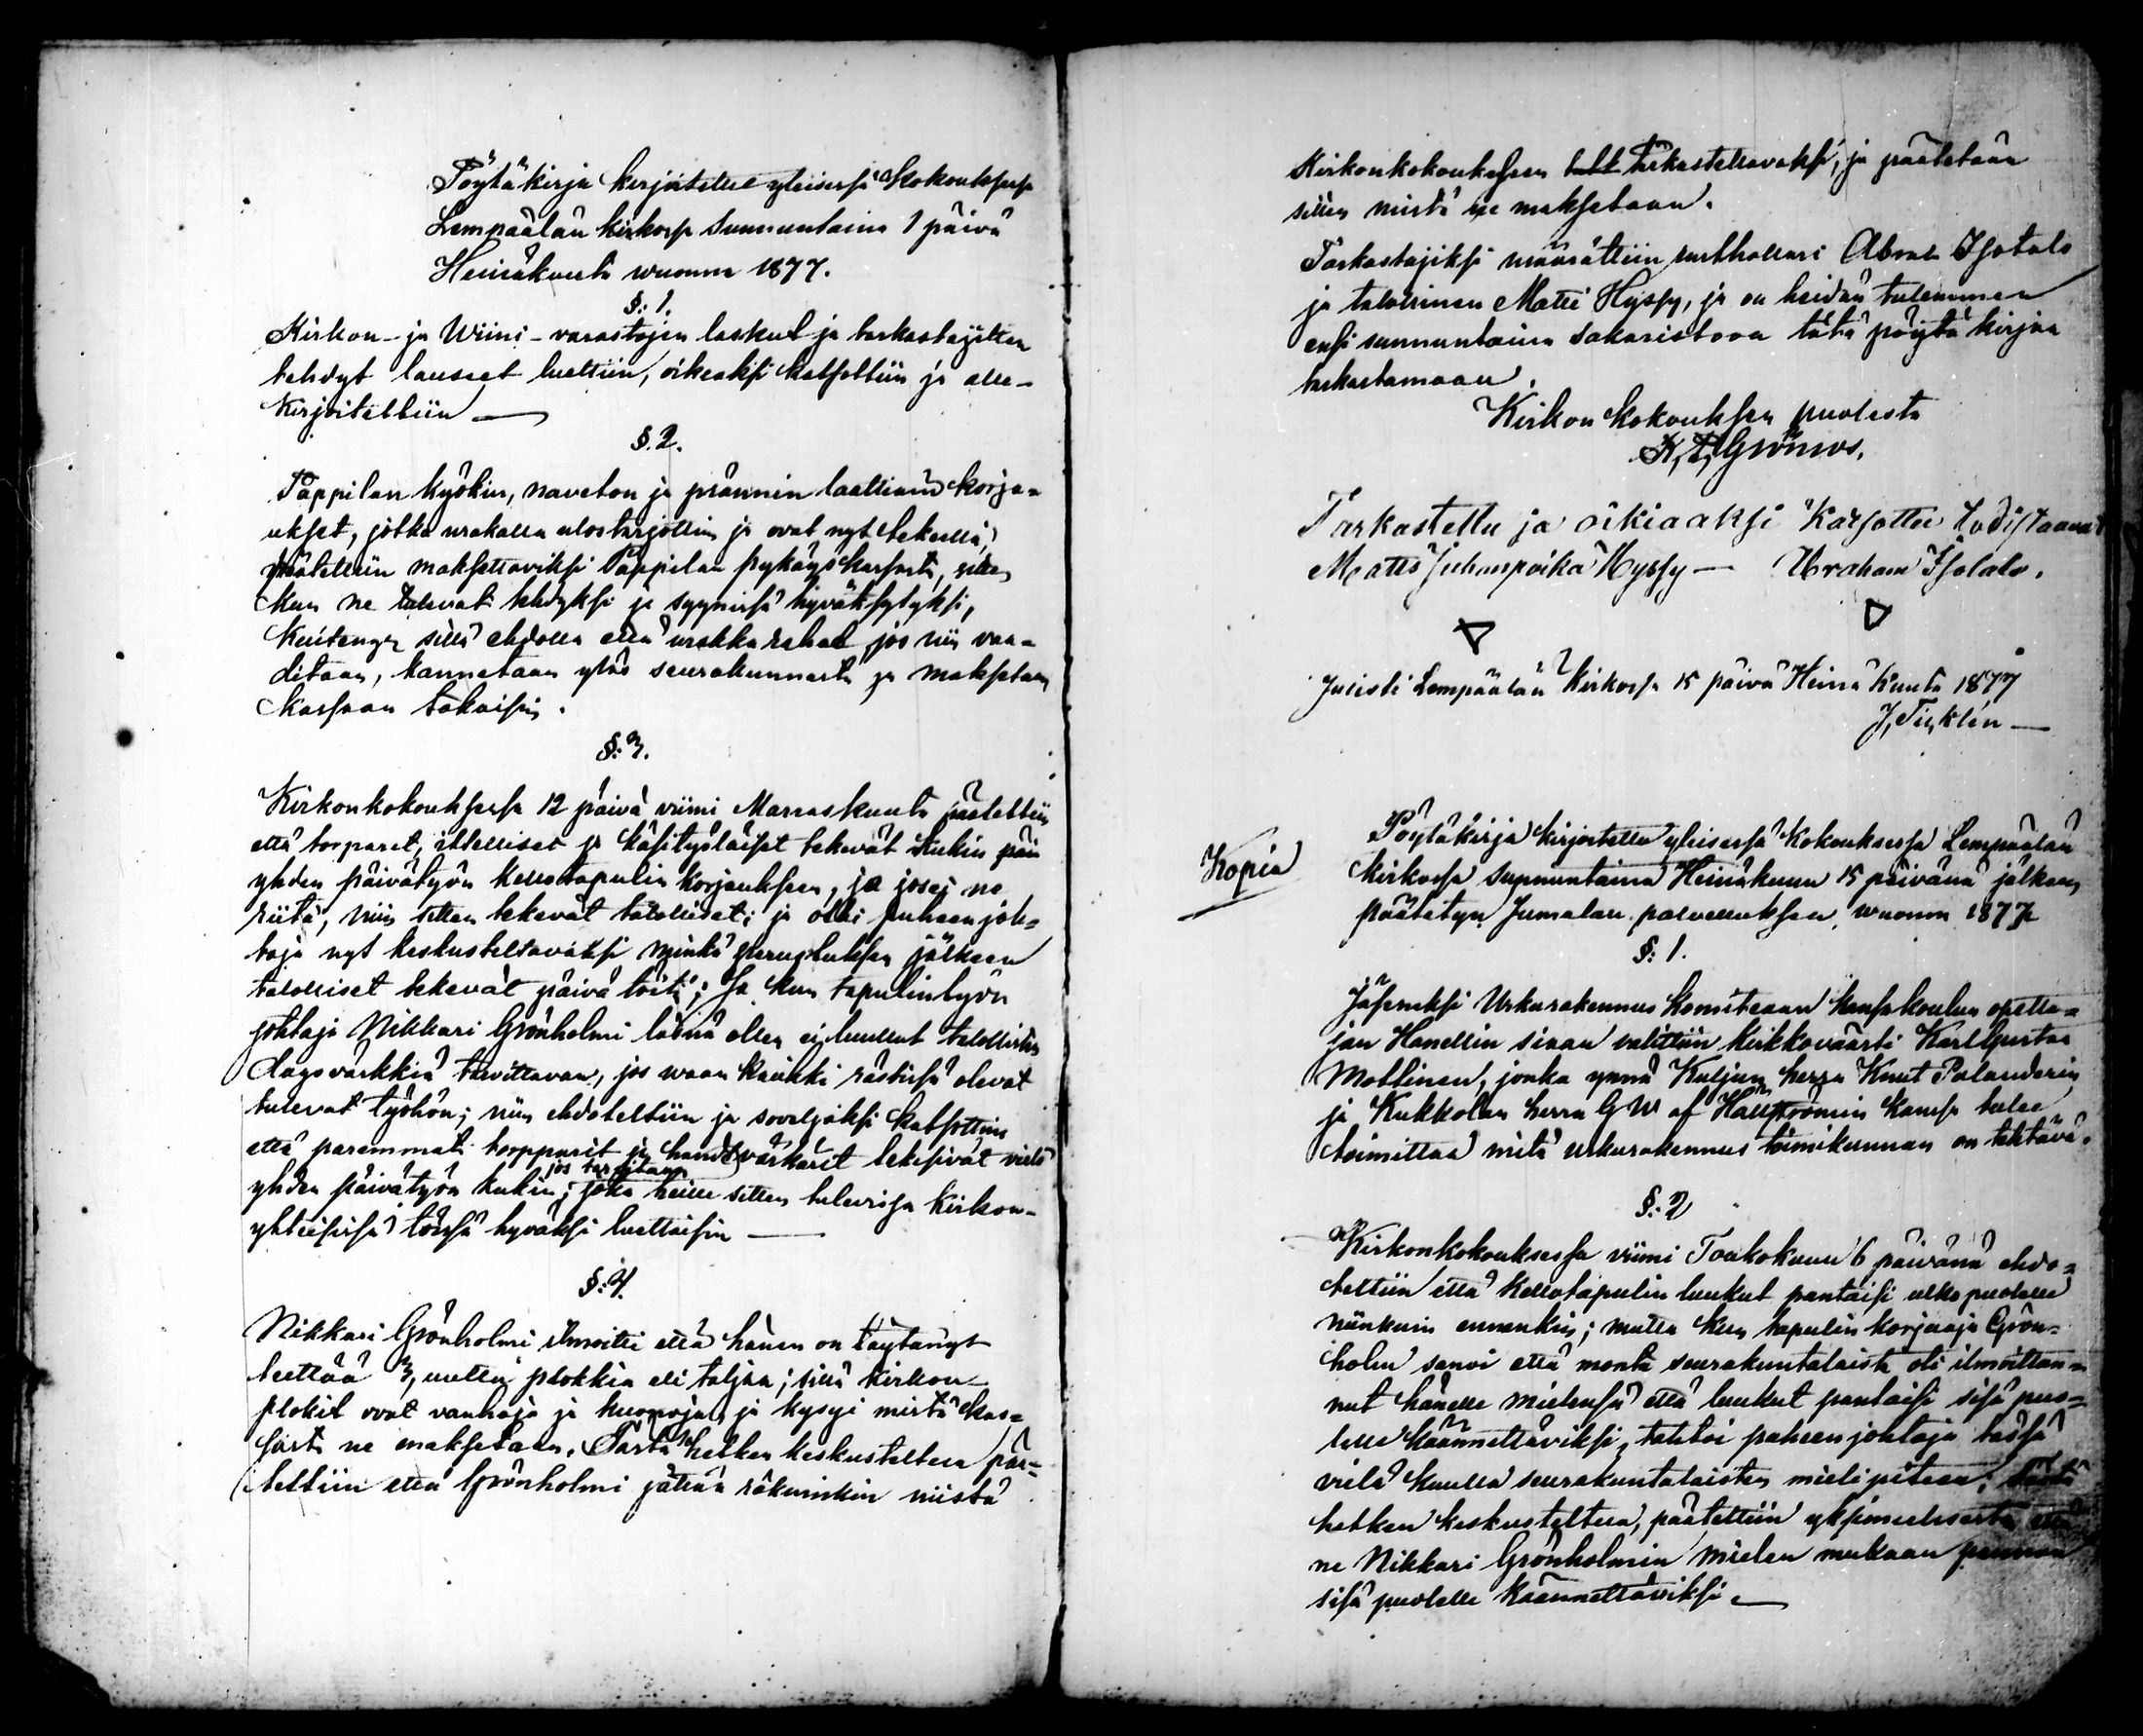 Pöytäkirja kirjoitettu yleisessä Kokouksessa
Lempäälän kirkossa Sunnuntaina 1 päivä
Heinäkuuta wuonna 1877.
§: 1.
Kirkon- ja Wiini-varastojen laskut ja tarkastajitten
tehdyt lauseet luettiin, oikeaksi katsottiin ja alle-
kirjoitettiin —
§. 2.
Pappilan kyökin, naveton ja prännin laattiain korja-
ukset, jotka urakalla ulostarjottiin ja ovat nyt tekeellä,
päätettiin maksettaviksi Pappilan pykäys kassasta, sitten
kun ne tulevat tehdyksi ja syynissä hyväksytyksi,
Kuitengin sillä ehdolla että urakka rahat, jos niin vaa-
ditaan, kannetaan ylös seurakunnasta ja maksetaan
kassaan takaisin.
§: 3.
Kirkonkokouksessa 12 päivä viimi Marraskuuta päätettiin
että torparit, itselliset ja käsityöläiset tekevät kukin päin
yhden päivätyön kellotapulin korjaukseen, ja josej ne
riitä, niin sitten tekevät talolliset; ja otti puheenjoh-
taja nyt keskusteltavaksi minkä perustuksen jälkeen
talolliset tekevät päivä töitä; Ja kun tapulintyön
johtaja Nikkari Grönholmi läsnä ollen ei luullut talollisten
dagsvärkkiä tarvittavan, jos waan kaikki rästissä olevat
tulevat työhön; niin ehdotettiin ja soveljaksi katsottiin
että paremmat torpparit ja handtvärkärit tekisivät vielä
jos tarvitaan
yhden päivätyön kukin; joka heille sitten tulevissa kirkon-
yhteisissä töissä hyväksi luettaisin —
§: 4.
Nikkari Grönholmi ilmoitti että hänen on täytänyt
teettää 3, uutta plokkia eli taljaa; sillä kirkon-
plokit ovat vanhoja ja huonoja, ja kysyi mistä kas-
sasta ne maksetaan. Tästä hetken keskusteltua pää-
tettiin että Grönholmi jättää räkninkin niistä
Kirkonkokoukseen tarkasteltavaksi, ja päätetään
sitten mistä ne maksetaan.
Tarkastajiksi määrättiin rusthollari Abrah Isotalo
ja talollinen Matti Hyssy, ja on heidän tuleminen
ensi sunnuntaina sakaristoon tätä pöytäkirjaa
tarkastamaan.
Kirkon kokouksen puolesta
K. F. Grönroos.
Tarkastettu ja oikiaaksi Katsottu todistaavat
Matts Juhanpoika Hyssy — Abraham Isotalo.
Julisti Lempäälän Kirkossa 15 päivä Heinä Kuuta 1877
J, Ticklén —
Kopia
Pöytäkirja kirjoitettu yleisessä Kokouksessa Lempäälän
kirkossa sunnuntaina Heinäkuun 15 päivänä jälkeen
päätetyn Jumalan palveluksen wuonna 1877
§: 1.
Jäseneksi Urkurakennus komiteaan kansakoulun opetta-
jan Hanellin siaan valittiin kirkkoväärti Karl Gustaa
Mattinen, jonka ynnä Kuljun herra Knut Palanderin
ja Kukkolan herra G W af Hällströmin kanssa tulee
toimittaa mitä urkurakennus toimikunnan on tehtävä.
§: 2
Kirkonkokouksessa viimi Toukokuun 6 päivänä ehdo-
tettiin että kellotapulin luukut pantaisi ulko puolelle
niinkuin ennenkin; mutta kun tapulin korjaaja Grön-
holm sanoi että monta seurakuntalaista oli ilmoittan-
nut hänelle mielensä että luukut pantaisi sisä puo-
lelle käännettäviksi, tahtoi puheenjohtaja tässä
vielä kuulla seurakuntalaisten mielipiteen; Tästä
hetken keskusteltua, päätettiin yksimielisesti että
ne Nikkari Grönholmin mielen mukaan pannaan
sisä puolelle käännettäviksi. —